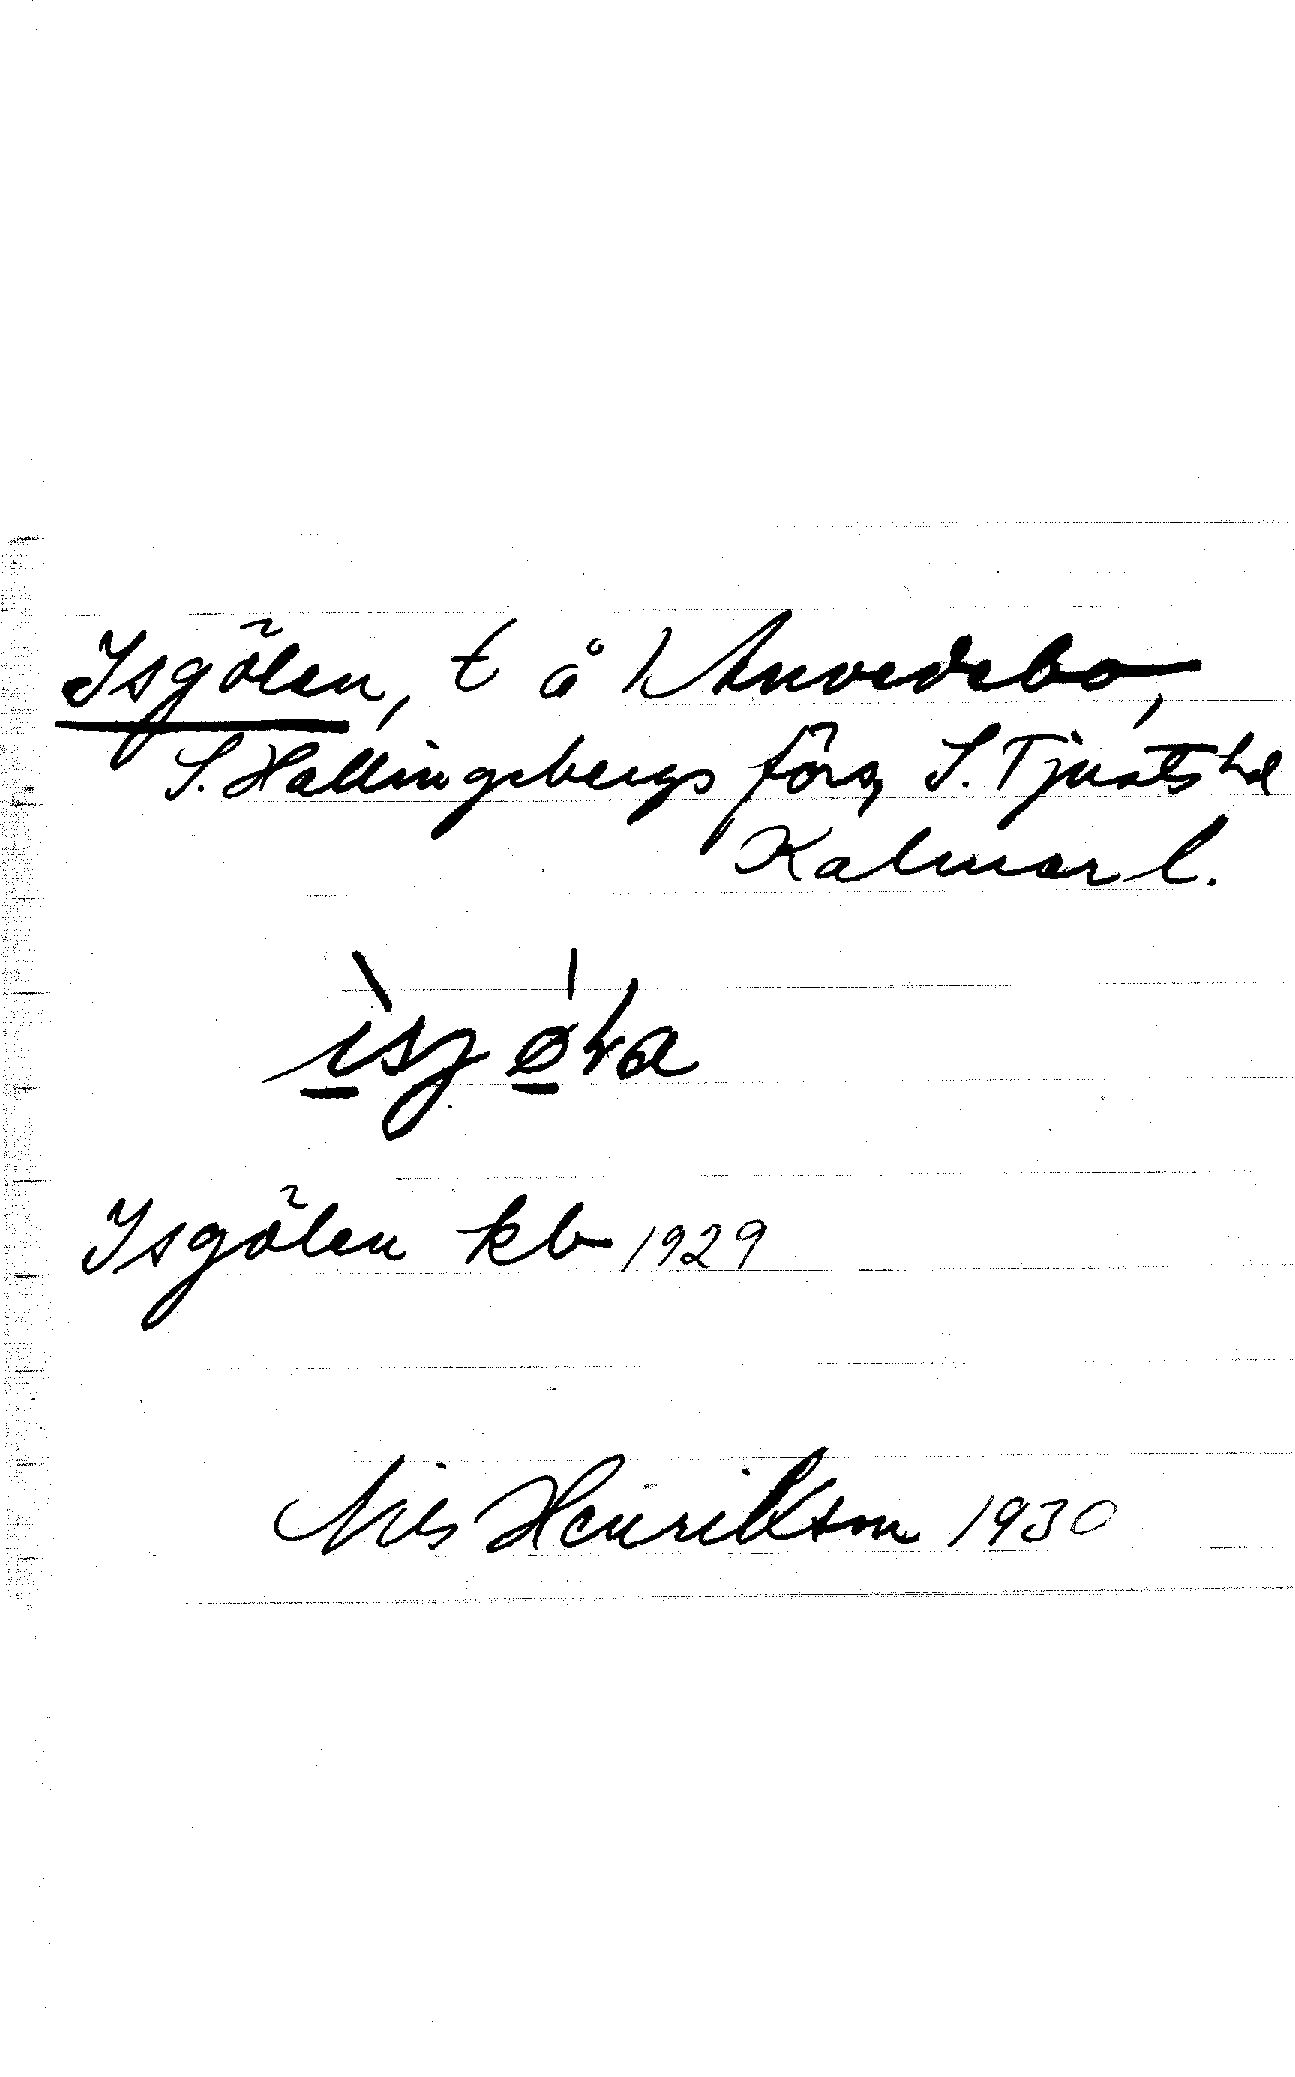 Isgölen, t å Anvedebo,
S. Hallingebergs förs, S. Tjusts hd
Kalmar l.
Isgölen kb 1929
Nils Henrikson 1930